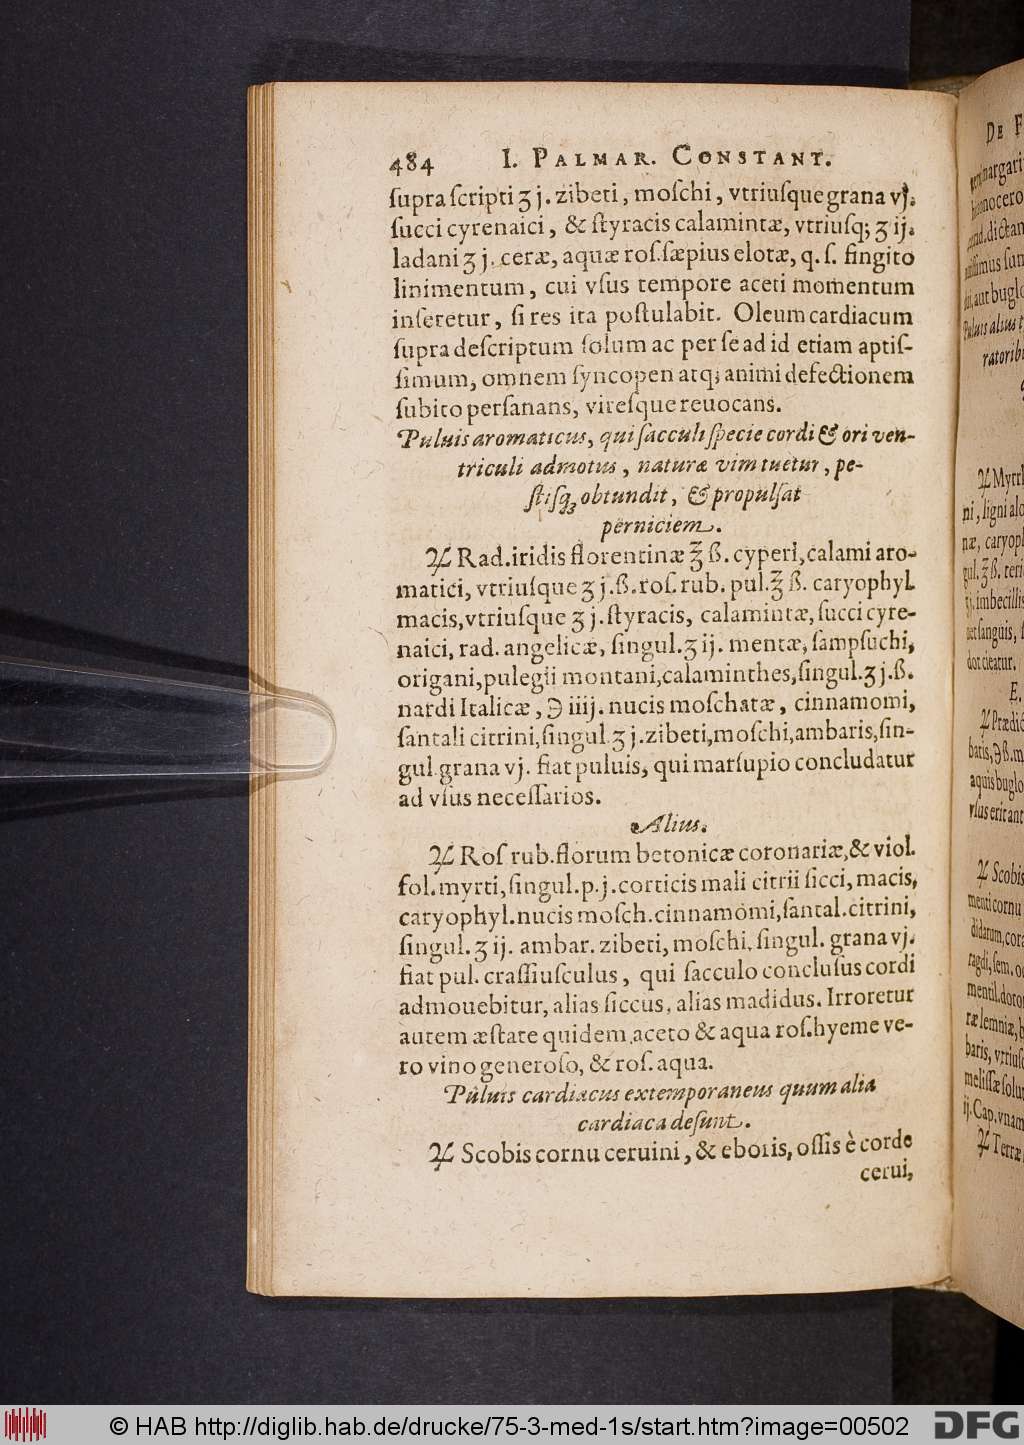 484 I. PALMAR. CONSTANT.
supra scripti ʒ j. zibeti, moschi, vtriusque grana vj.
succi cyrenaici, & styracis calamintæ, vtriusq; ʒ ij.
ladani ʒ j. ceræ, aquæ ros. sæpius elotæ, q. s. fingito
linimentum, cui vsus tempore aceti momentum
inseretur, si res ita postulabit. Oleum cardiacum
supra descriptum solum ac per se ad id etiam aptis-
simum, omnem syncopen atq; animi defectionem
subito persanans, viresque reuocans.
Puluis aromaticus, qui sacculi specie cordi & ori ven-
triculi admotus, naturæ vim tuetur, pe-
stisq; obtundit, & propulsat
perniciem.
♃ Rad. iridis florentinæ ℥ ß. cyperi, calami aro-
matici, vtriusque ʒ j. ß. ros. rub. pul. ℥ ß. caryophyl.
macis, vtriusque ʒ j. styracis, calamintæ, succi cyre-
naici, rad. angelicæ, singul. ʒ ij. mentæ, sampsuchi,
origani, pulegii montani, calaminthes, singul. ʒ j. ß.
nardi Italicæ, ℈ iiij. nucis moschatæ, cinnamomi,
santali citrini, singul. ʒ j. zibeti, moschi, ambaris, sin-
gul. grana vj. fiat puluis, qui marsupio concludatur
ad vsus necessarios.
Alius.
♃ Ros rub. florum betonicæ coronariæ, & viol.
fol. myrti, singul. p. j. corticis mali citrii sicci, macis,
caryophyl. nucis mosch. cinnamomi, santal. citrini,
singul. ʒ ij. ambar. zibeti, moschi, singul. grana vj.
fiat pul. crassiusculus, qui sacculo conclusus cordi
admouebitur, alias siccus, alias madidus. Irroretur
autem æstate quidem aceto & aqua ros. hyeme ve-
ro vino generoso, & ros. aqua.
Puluis cardiacus extemporaneus quum alia
cardiaca desunt.
♃ Scobis cornu ceruini, & eboris, ossis è corde
cerui,
DE F
♃ Myrrh
ni, ligni alo
næ, caryoph
gul. ℥ ß. 
imbecillis
dot. cieatur.
E.
♃ Prædic
aquis buglo
vsus erit ant
♃ Scobis
menti cornu
ragdi, sem.
ræ lemniæ,
baris, vtrius
melissæ solu
ij. Cap. vnam
♃ Terræ
© HAB http://diglib.hab.de/drucke/75-3-med-1s/start.htm?image=00502
DFG